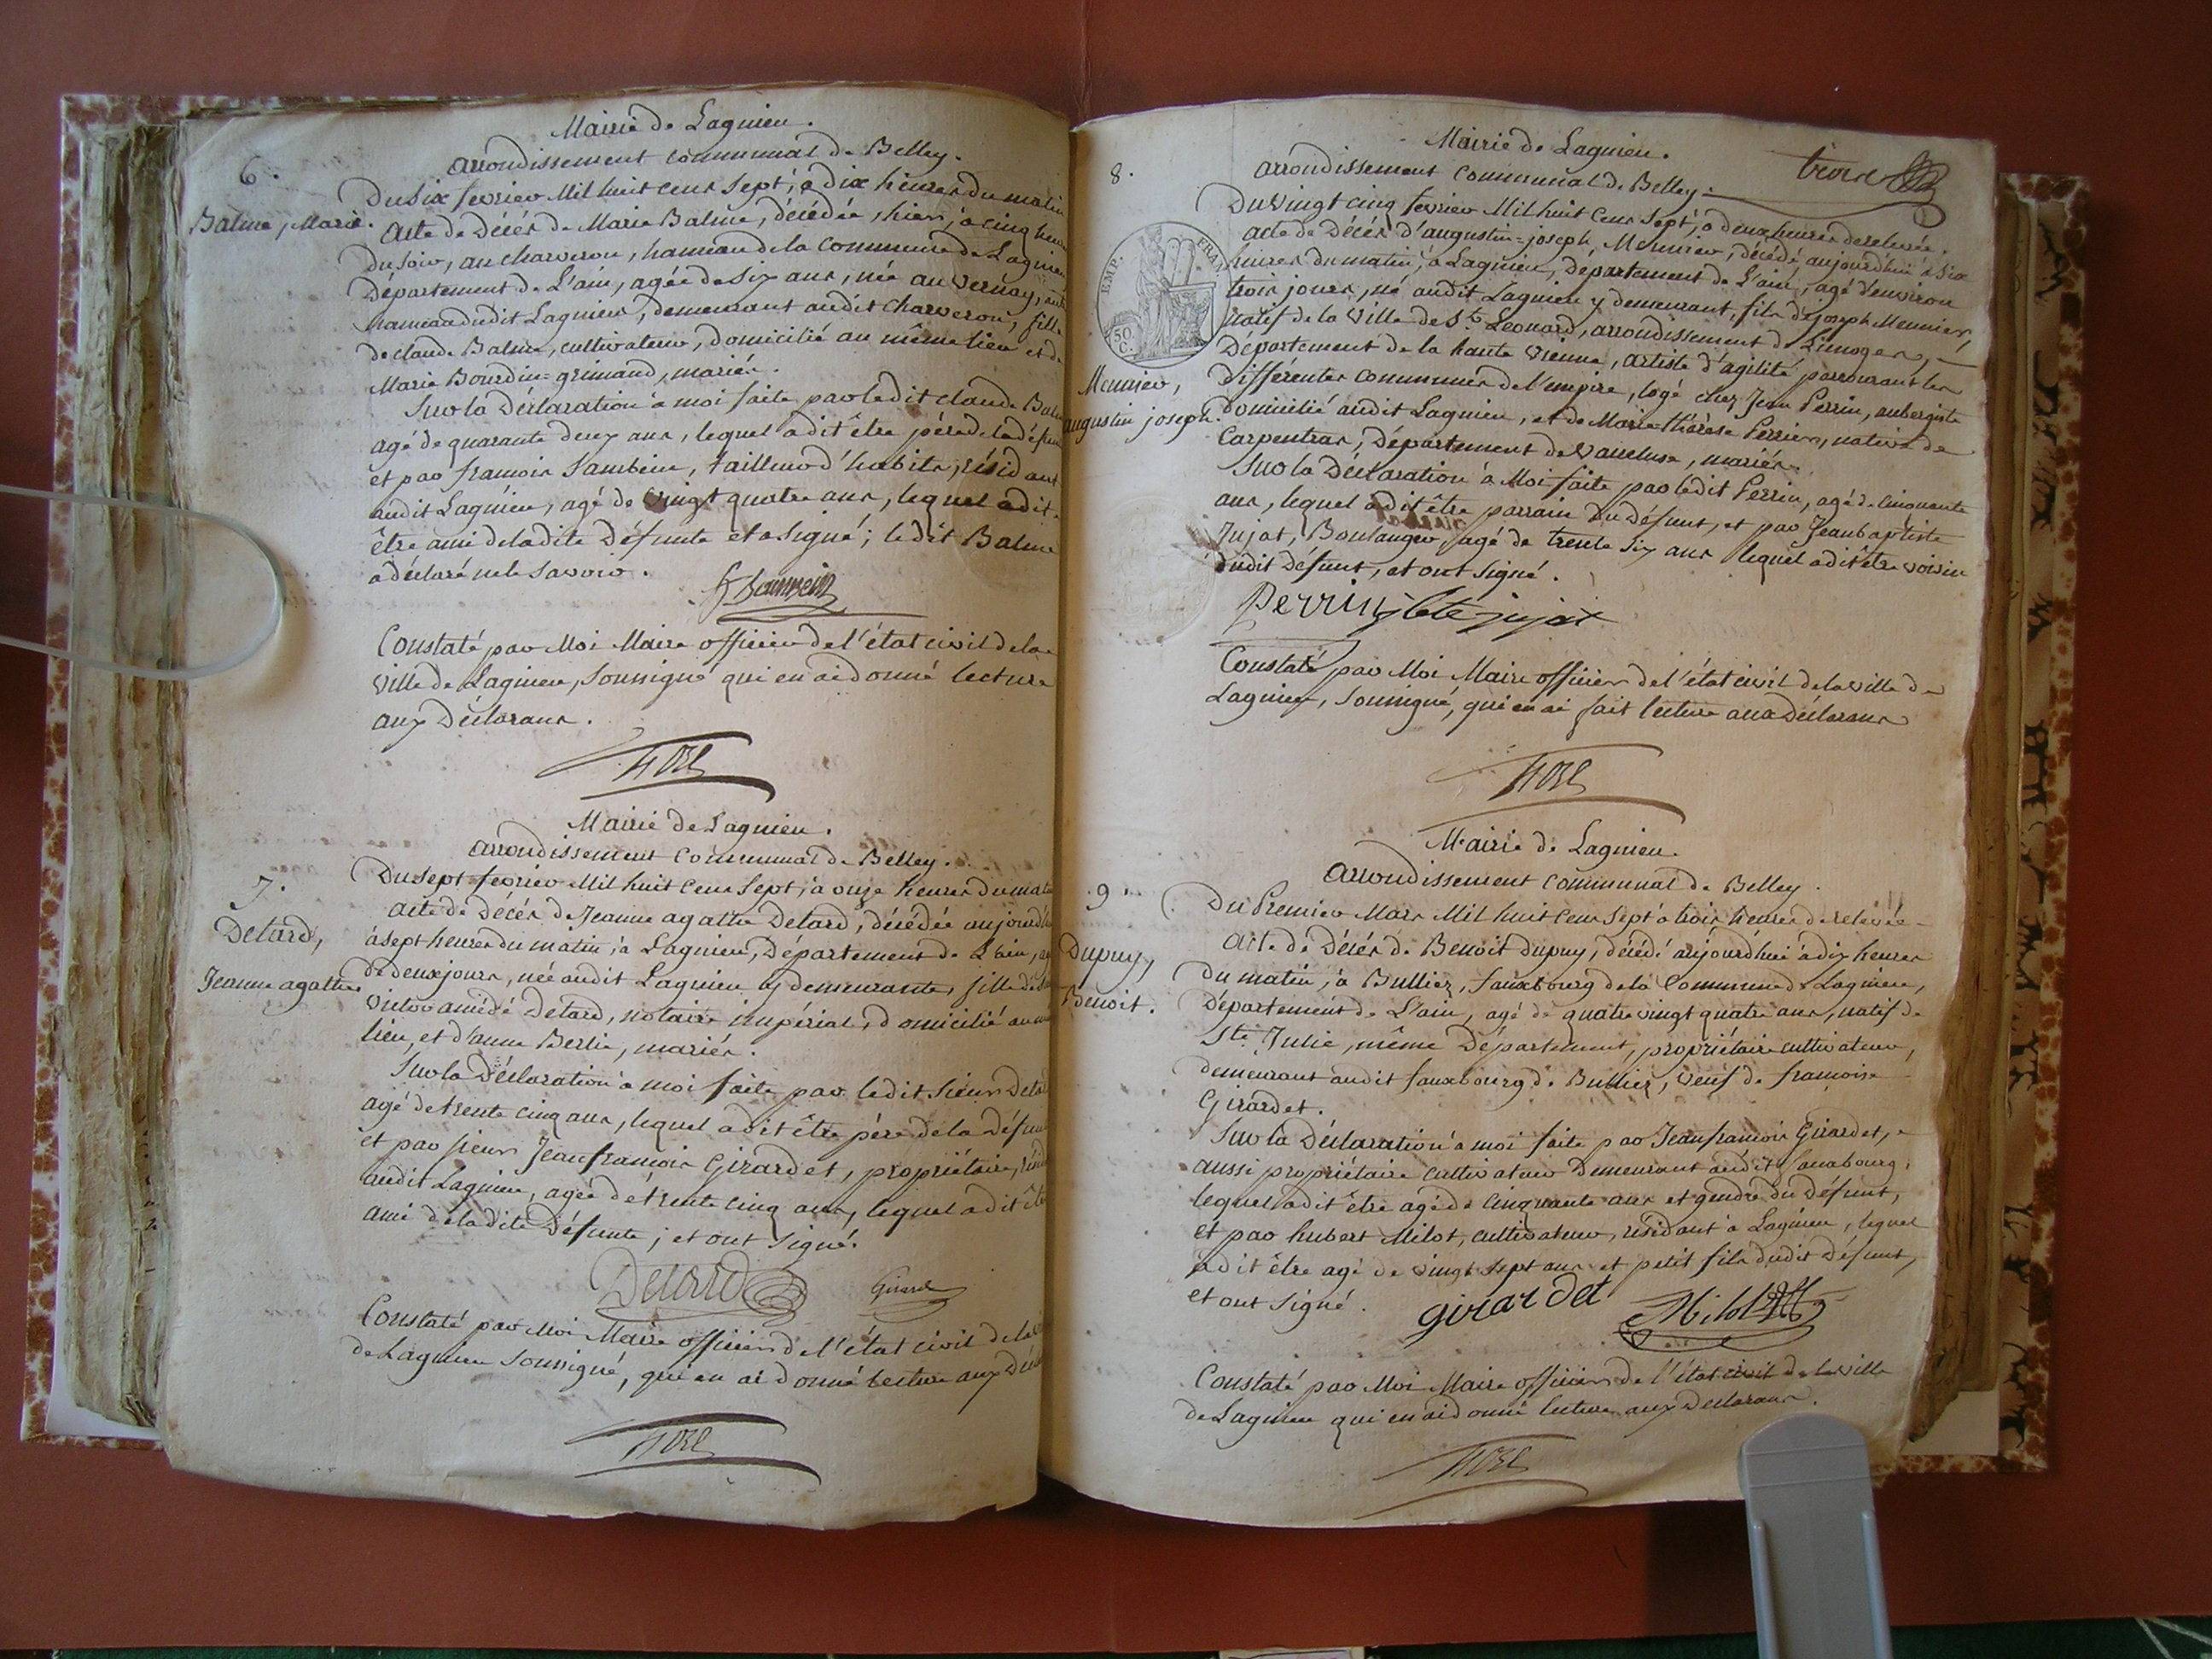 Mairie de Lagnieu.
arrondissement communal de Belley.
6.
Du six fevrier Mil huit cens sept, à dix heures du matin
Balme, Marie.
acte de Décés de Marie Balme, décédée, hier, à cinq heures
du soir, au charveron, hameau de la Commune de Lagnieu
Département de L'ain, agée de six ans, née au vernay,
hameau dudit Lagnieu, demeurant audit charveron, fille
de claude Balme, cultivateur, domicilié au même lieu et de
Marie Bourdin=grimaud, mariés.
Sur la Déclaration à moi faite par ledit claude Balme
agé de quarante deux ans, lequel a dit être père de la défunte
et par francois Sambein, tailleur d'habits, résidant
audit Lagnieu, agé de vingt quatre ans, lequel a dit
être ami de ladite Défunte et a signé; ledit Balme
a déclaré ne le savoir.
Constaté par Moi Maire officier de l'état civil de la
ville de Lagnieu, soussigné qui en ai donné lecture
aux Déclarans.
Mairie de Lagnieu.
arrondissement communal de Belley.
7.
Du sept fevrier Mil huit cens sept, à onze heures du matin
Detard,
Jeanne agathe.
acte de Décés de Jeanne agathe Detard, décédée aujourd'hui
à sept heures du matin, à Lagnieu, Département de L'ain,
de deux jours, née audit Lagnieu y demeurante, fille de
victor amédé Detard, notaire impérial, domicilié au
lieu, et d'anne Berlie, mariés.
Sur la Déclaration à moi faite par ledit sieur Detard
agé de trente cinq ans, lequel a dit être père de la Défunte
et par sieur Jean francois Girardet, propriétaire,
audit Lagnieu, agée de trente cinq ans, lequel a dit être
ami de ladite Défunte; et ont signé.
Detard Girard
Constaté par Moi Maire officier de l'état civil de la
de Lagnieu soussigné, qui en ai donné lecture aux
Mairie de Lagnieu.
troise
arrondissement communal de Belley.
8.
Du vingt cinq fevrier Mil huit cens sept, à deux heures de relevée.
acte de Décés d'augustin=joseph Meunier, décédé aujourd'hui à six
EMP. FRAN
50 C.
heures du matin, à Lagnieu, département de L'ain, agé d'environ
trois jours, né audit Lagnieu y demeurant, fils de joseph Meunier,
natif de la ville de St. Leonard, arrondissement de Limoges,
Département de la haute vienne, artiste d'agilité parcourant les
Meunier,
augustin joseph.
différentes communes de l'empire, logé chez Jean Perrin, aubergiste
domicilié audit Lagnieu, et de Marie=thérèse Perrier, native de
Carpentras, Département de vaucluse, mariés.
Sur la Déclaration à Moi faite par ledit Perrin, agé de cinquante
ans, lequel a dit être parrain du Défunt, et par Jean baptiste
Jujat, Boulanger, agé de trente six ans lequel a dit être voisin
dudit Défunt, et ont signé.
Perrin jbte jujat
Constaté par Moi Maire officier de l'état civil de la ville de
Lagnieu, soussigné, qui en ai fait lecture aux Déclarans
Mairie de Lagnieu.
arrondissement communal de Belley.
9.
Du Premier Mars Mil huit cens sept à trois heures de relevée
Dupuy,
Benoit.
acte de Décés de Benoit Dupuy, décédé aujourd'hui à dix heures
du matin, à Bulliez, fauxbourg de la Commune de Lagnieu,
Département de L'ain, agé de quatre vingt quatre ans, natif de
Ste. Julie, même Département, propriétaire cultivateur,
demeurant audit fauxbourg de Bulliez, veuf de francoise
Girardet.
Sur la Déclaration à moi faite par Jean francois Girardet,
aussi propriétaire cultivateur Demeurant audit fauxbourg,
lequel a dit être agé de cinquante ans et gendre du Défunt,
et par hubert Milot, cultivateur, résidant à Lagnieu, lequel
a dit être agé de vingt sept ans et petit fils dudit Défunt,
et ont signé.
girardet Milot
Constaté par Moi Maire officier de l'état civil de la ville
de Lagnieu qui en ai donné lecture aux Declarans.